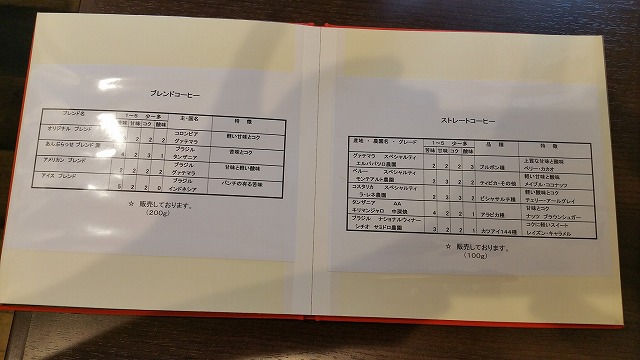 ブレンドコーヒー
ブレンド名 1～5 少ー多 主・国名 特徴
苦味 甘味 コク 酸味
オリジナル ブレンド 2 2 2 コロンビア 軽い甘味とコク
グァテマラ
あしぶらっせ ブレンド 深 4 2 3 1 ブラジル 苦味とコク
タンザニア
アメリカン ブレンド 2 2 2 ブラジル 甘味と軽い酸味
グァテマラ
アイス ブレンド 5 2 2 0 ブラジル パンチの有る苦味
インドネシア
☆ 販売しております。
（200g）
ストレートコーヒー
産地・農園名・グレード 1～5 少ー多 品種 特徴
苦味 甘味 コク 酸味
グァテマラ スペシャルティ 2 2 2 3 ブルボン種 上質な甘味と酸味
エルパパツロ農園 ベリー・カカオ
ペルー スペシャルティ 2 2 2 2 ティピカ・その他 軽い甘味と酸味
モンテアルト農園 メイプル・ココナッツ
コスタリカ スペシャルティ 2 3 3 2 ビジャサルチ種 軽い酸味とコク
ラ・レネ農園 チェリー・アールグレイ
タンザニア AA 4 2 2 1 アラビカ種 甘味とコク
キリマンジャロ 中深焼 ナッツ ブラウンシュガー
ブラジル ナショナルウィナー 3 2 2 1 カツアイ144種 コクに軽いスイート
シチオ サ農園 レイズン・キャラメル
☆ 販売しております。
（100g）